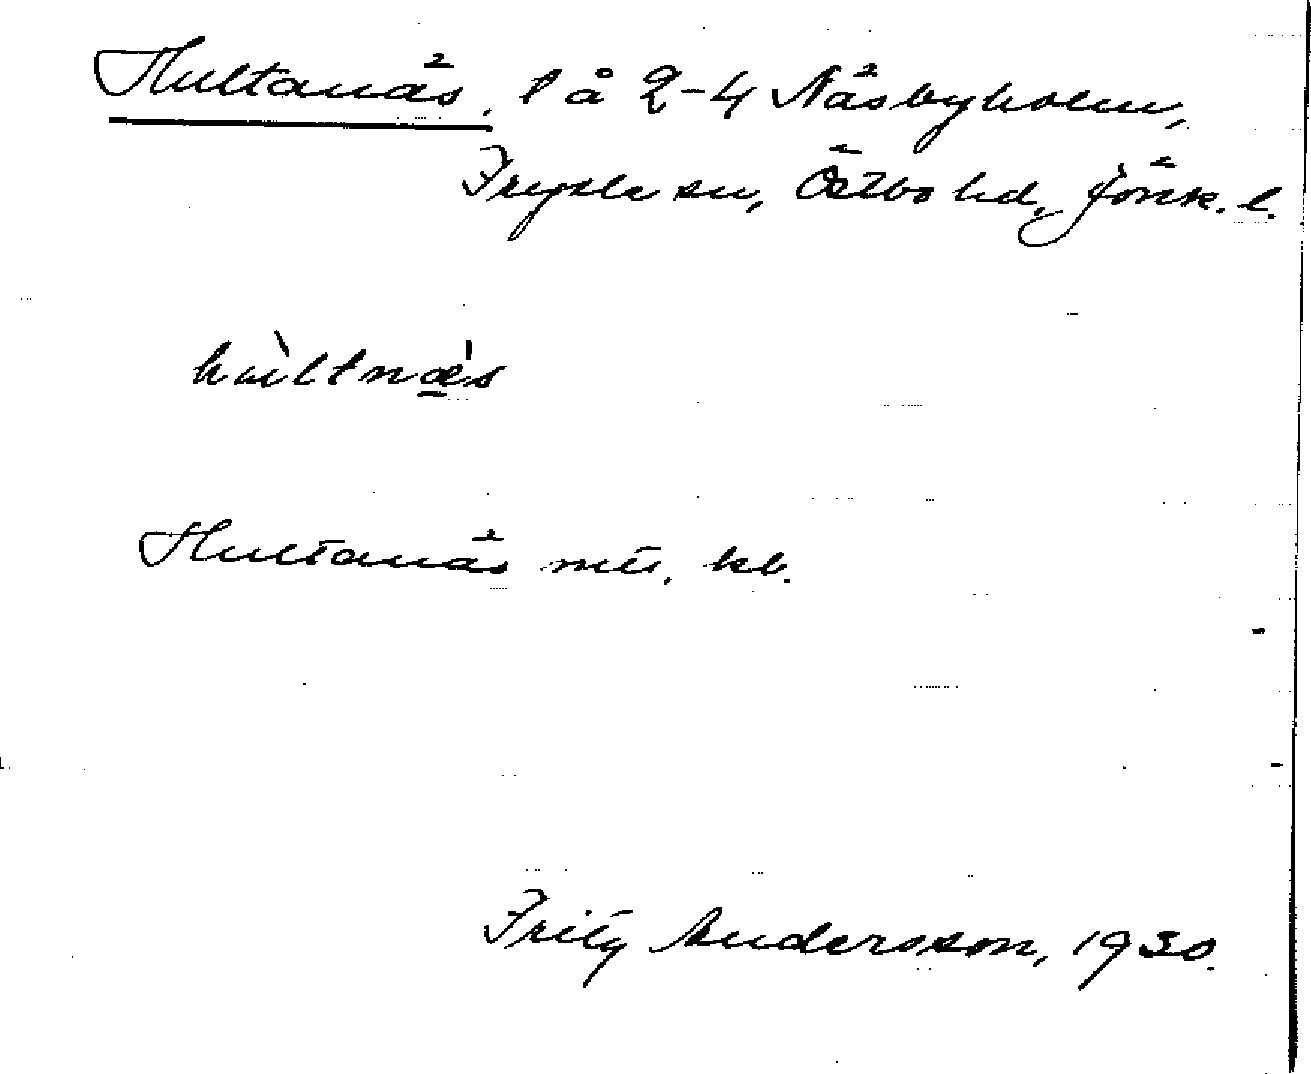 Hultanäs, l å 2-4 Näsbyholm,
Fryele sn, Östbo hd, Jönk. l.
hùltnǽ̠s
Hultanäs mtl. kb.
Fritz Andersson, 1930.